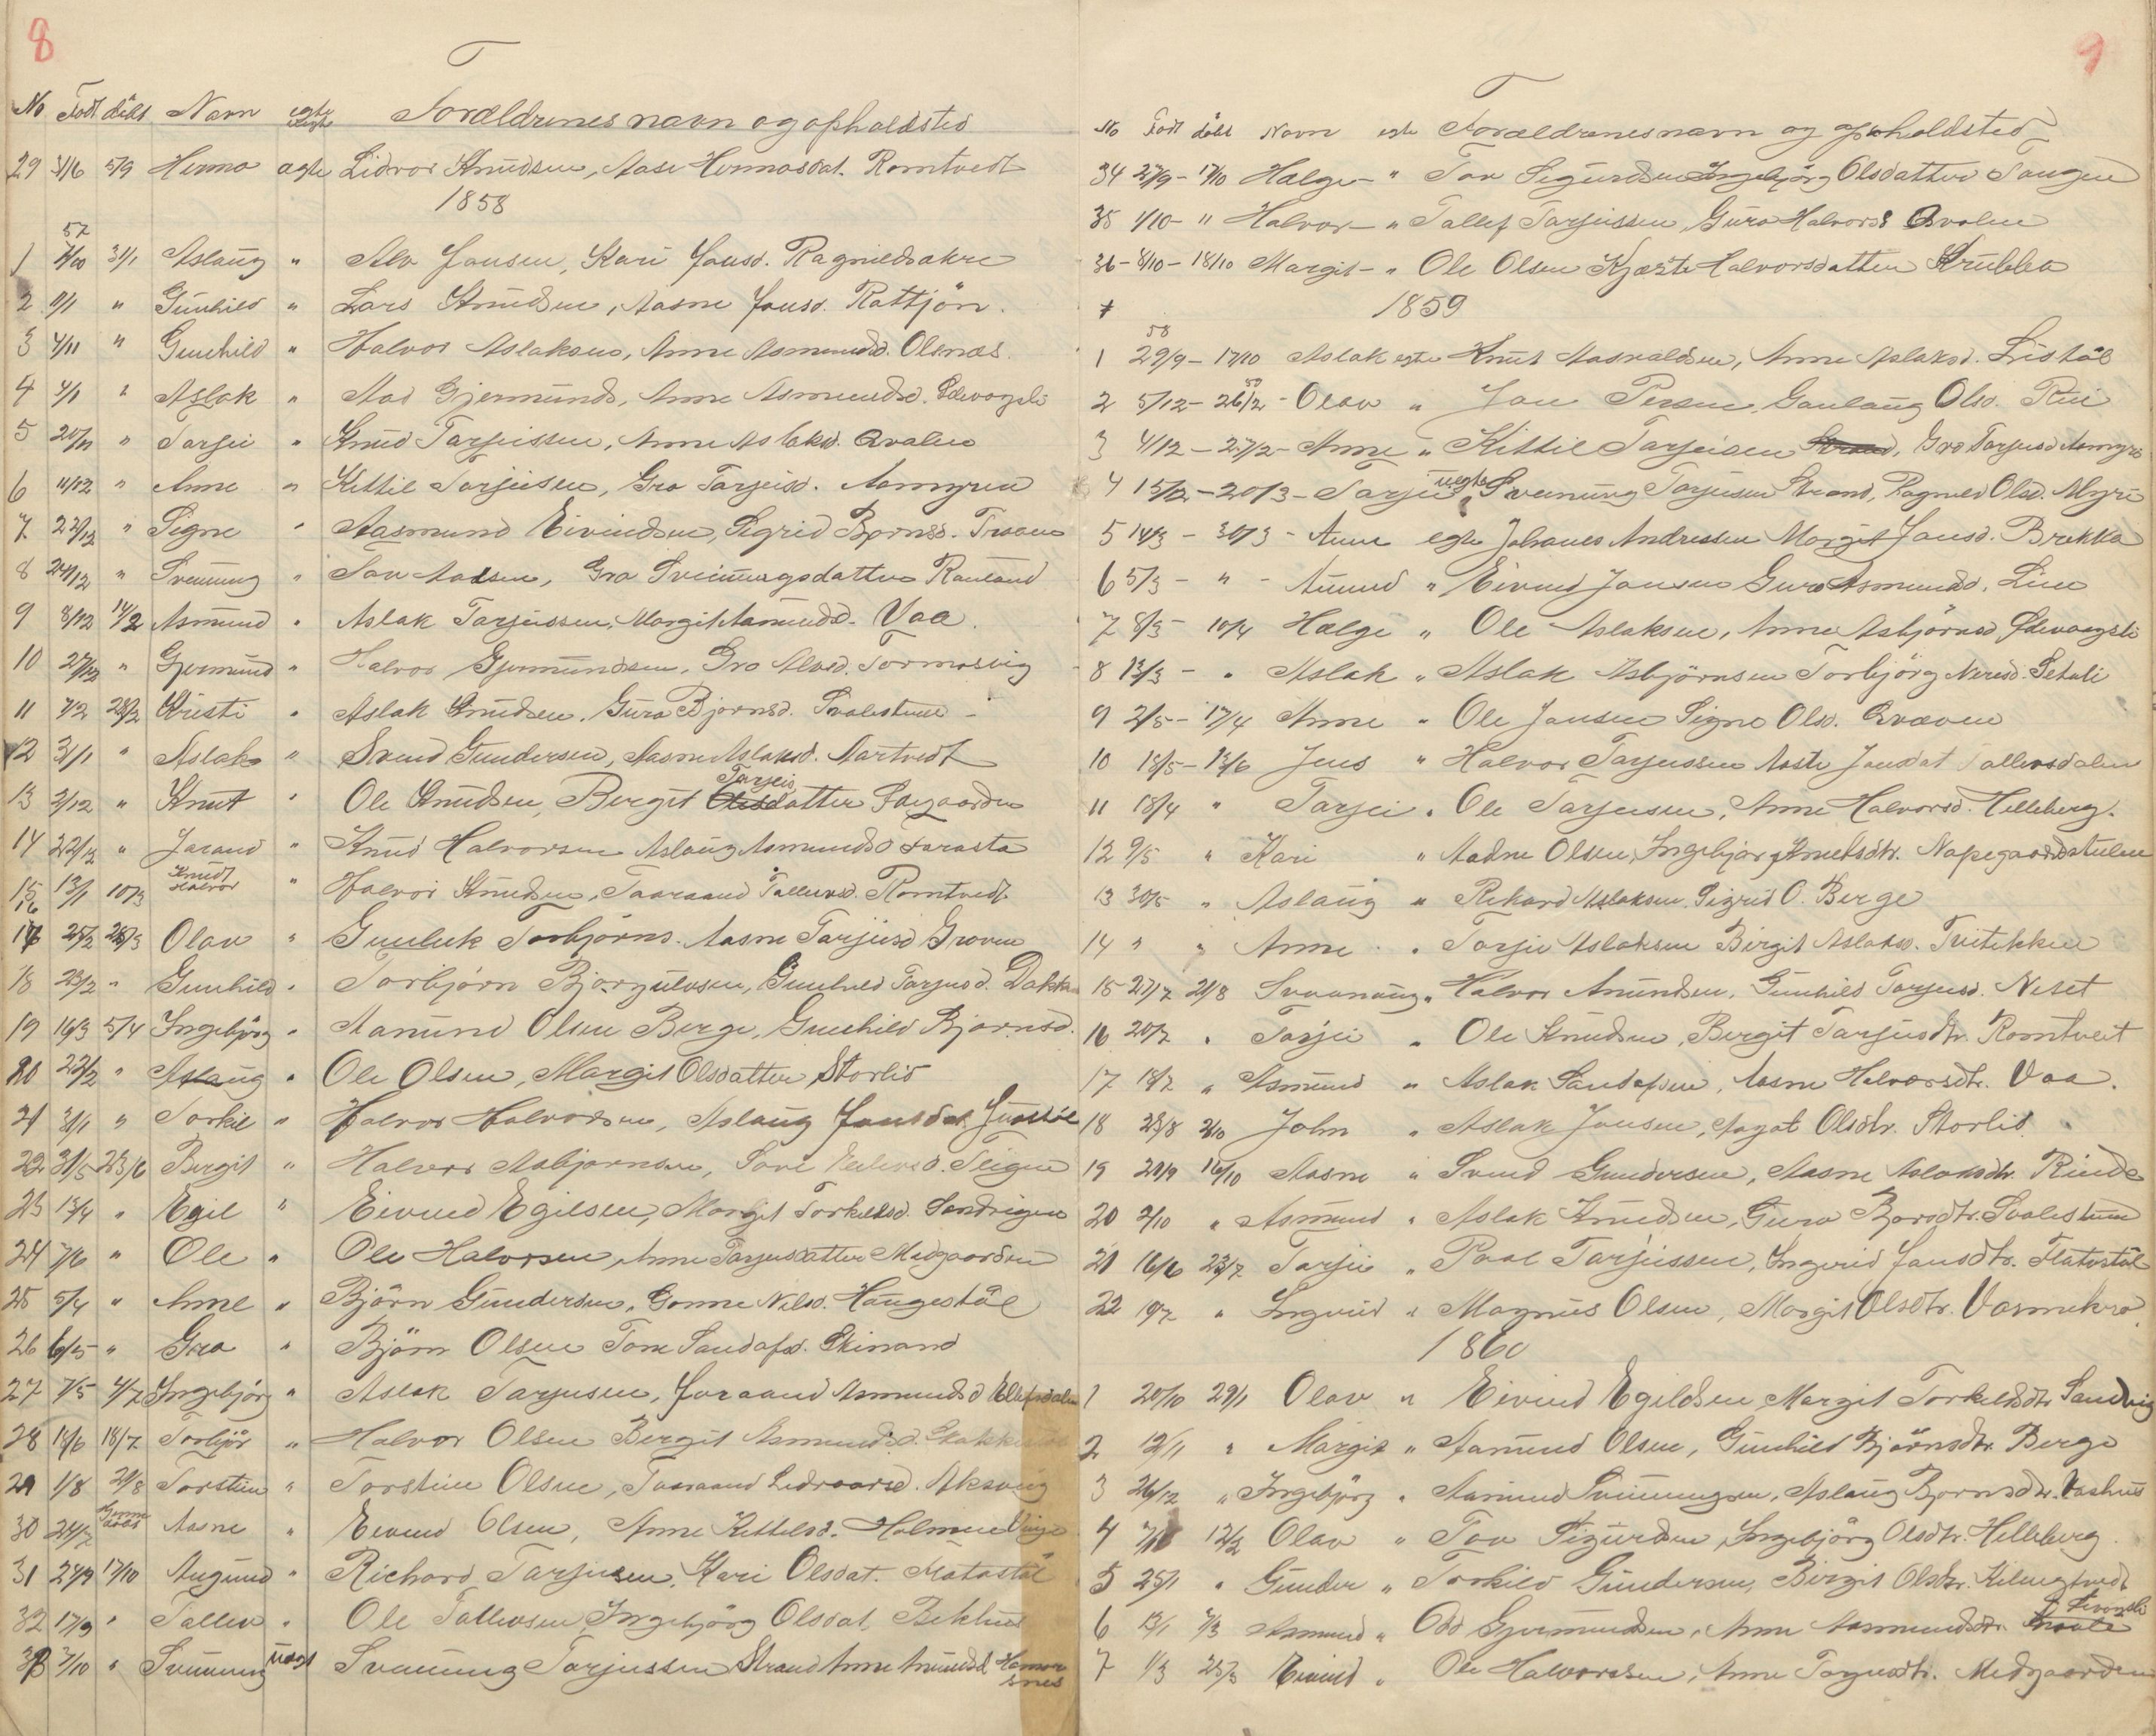 8
No Født døbt Navn egte uegte Forældrenes navn og opholdsted
29 3/6 5/9 Hermo egte Lidvor Knudsen, Aase Hermosdat. Romtvedt
1858
57
1 31/1 Aslaug " Alv Jonsen, Kari Jonsd. Ragnildsakre
2 9/1 " Gunhild " Lars Knudsen, Aasne Jonsd. Rattjön.
3 4/11 " Gunhild " Halvor Aslaksen, Anne Asmundsd. Olsnæs.
4 4/1 " Aslak " Aad Gjermunds, Anne Asmundsd.
5 " Tarjei " Knud Tarjeissen, Anne Aslaksd. Qvalen
6 11/12 " Anne " Kittil Tarjeisen, Gro Tarjeisd. Aamyren
7 22/12 " Signe " Aasmund Eivindsen, Sigrid Bjornsd. Troaen
8 24/12 " Sveinung " Tov Aadsen, Gro Sveinungsdatter Rauland
9 8/12 14/2 Asmund " Aslak Tarjeissen, Margit Aamundsd. Vaa.
10 27/12 " Gjermund " Halvor Gjermundsen, Gro Alvsd. Tormosvig
11 7/2 28/2 Kristi " Aslak Knudsen. Guro Bjornsd. Svalestuen
12 3/1 " Aslak " Svend Gundersen, Aasne Aslaksd. Aartvedt
13 2/12 " Knut " Ole Knudsen, Bergit Tarjeis Olesdatter
14 22/12 " Jarand " Knud Halvorsen Aslaug Asmundsd
15 16 13/1 10/3 Knudt Halvor " Halvor Knudsen, Taaraand Tallevsd. Romtvedt
17 25/2 28/3 Olav " Gunluk Torbjörns. Aasne Tarjeisd Groven
18 23/2 " Gunhild " Torbjørn Bjorgulvsen, Gunhild Tarjeisd. Dakka
19 16/3 5/4 Ingebjörg " Aamund Olsen Berge, Gunhild Bjornsd.
20 22/2 " Aslaug " Ole Olsen, Margit Olsdatter Storlid
21 31/1 " Torkil " Halvor Halvorsen, Aslaug Jonsdat.
22 31/5 23/6 Bergit " Halvor Asbjornsen, Teigen
23 13/4 " Egil " Eivind Egilsen, Margit Torkelsd. Sandvigen
24 7/6 " Ole " Ole Halvorsen, Anne Tarjeisdatter Midgaarden
25 5/4 " Anne " Björn Gundersen, Gonne Nilsd. Haugestöl
26 6/5 " Gro " Björn Olsen Tone Sandafsd. Skinand
27 7/5 4/7 Ingebjörg " Aslak Tarjeisen, Joraand Asmundsd
28 18/6 18/7 Torbjör " Halvor Olsen Bergit Asmundsd.
29 1/8 21/8 Torstein " Torstein Olsen, Taaraand Lidvoarsd. Aksvig
30 24/7 Aasne " Eivind Olsen, Anne Kittelsd. Holmen Vinje
31 27/9 17/10 Augund " Richard Tarjeisen, Kari Olsdat.
32 17/9 " Tallev " Ole Tallevsen, Ingebjörg Olsdat, Bekhus
33 7/10 " Sveinung uægt Sveinung Tarjeissen Strand Anne Amundsd, Homvesnes
9
No Født döbt Navn egte Forældrenes navn og opholdsted
34 27/9 - 17/10 Halge - " Tov Sigurdsen Ingebjörg Olsdatter Tangen
35 1/10 - " Halvor - " Tallef Tarjeissen, Guro Halvors Qvalen
36 - 8/10 - 18/10 Margit - " Ole Olsen Kjærsti Halvorsdatter Krubba
1859
58
1 29/9 - 17/10 Aslak egte Knut Aasvaldsen, Anne Aslaksd. Listöl
2 5/12 - 26/2 - Olav " Jon Persen, Gunlaug Olsd. Rui
3 4/12 - 27/2 - Anne " Kittil Tarjeisen Strand, Gro Tarjeisd Aamyre
4 15/2 - 20/3 - Tarjei uegte Sveinung Tarjeisen Strand, Ragnild Olsd. Myri
5 14/3 - 30/3 - Anne egte Johannes Andressen Margit Jonsd. Brekka
6 5/3 - " - Amund " Eivind Jonsen Guro Asmundsd. Lien
7 8/3 - 10/4 Halge " Ole Aslaksen, Anne Asbjörnsd
8 13/3 - " Aslak " Aslak Asbjörnsen Torbjörg Nirisd. Setali
9 2/5 - 17/4 Anne " Ole Jonsen Signe Olsd. Qvæven
10 18/5 - 13/6 Jens " Halvor Tarjeissen Aaste Jonsdat Tallevsdalen
11 18/4 " Tarjei " Ole Tarjeisen, Anne Halvorsd. Helleberg.
12 9/5 " Kari " Aadne Olsen, Ingebjorg Knutsdtr. Napegaardstulen
13 30/5 " Aslaug " Rikard Aslaksen Sigrid O. Berge
14 " " Anne " Tarjei Aslaksen Birgit Aslaksd. Tveitekken
15 27/7 21/8 Svaanaug " Halvor Amundsen, Gunhild Tarjeisd. Neset
16 20/7 " Tarjei " Ole Knudsen, Bergit Tarjeisdtr. Romtveit
17 18/7 " Asmund " Aslak Sandafsen, Aasne Halvorsdtr. Vaa.
18 23/8 2/10 John " Aslak Jonsen, Aagot Olsdtr. Storlid
19 29/9 16/10 Aasne " Svend Gundersen, Aasne Aslaksdtr. Rinde
20 2/10 " Asmund " Aslak Knudsen, Guro Bjorsdtr. Svalestuen
21 16/6 23/7 Tarjei " Paal Tarjeissen, Ingerid Jonsdtr. Flatestöl
22 10/7 " Ingerid " Magnus Olsen, Margit Olsdtr. Varmekro
1860
1 20/10 29/1 Olav " Eivind Egildsen Margit Torkeldsdtr. Sandvig
2 12/11 " Margit " Aamund Olsen, Gunhild Bjørnsdtr. Berge
3 26/12 " Ingebjörg " Aamund Sveinungsen, Aslaug Bjornsdtr. Vaahus
4 12/2 Olav " Tov Sigurdsen, Ingebjörg Olsdtr. Helleberg.
5 25/1 " Gunder " Torkild Gundersen, Birgit Olsdtr.
6 13/1 7/3 Asmund " Odd Gjermundsen, Anne Aasmundsdtr.
7 1/3 25/3 Eivind " Ole Halvorsen, Anne Tarjeisdtr. Midgaarden